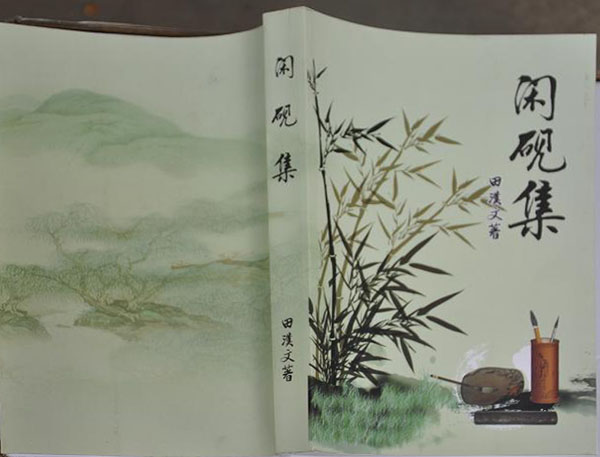 闲砚集
田汉文著
闲砚集
田汉文著